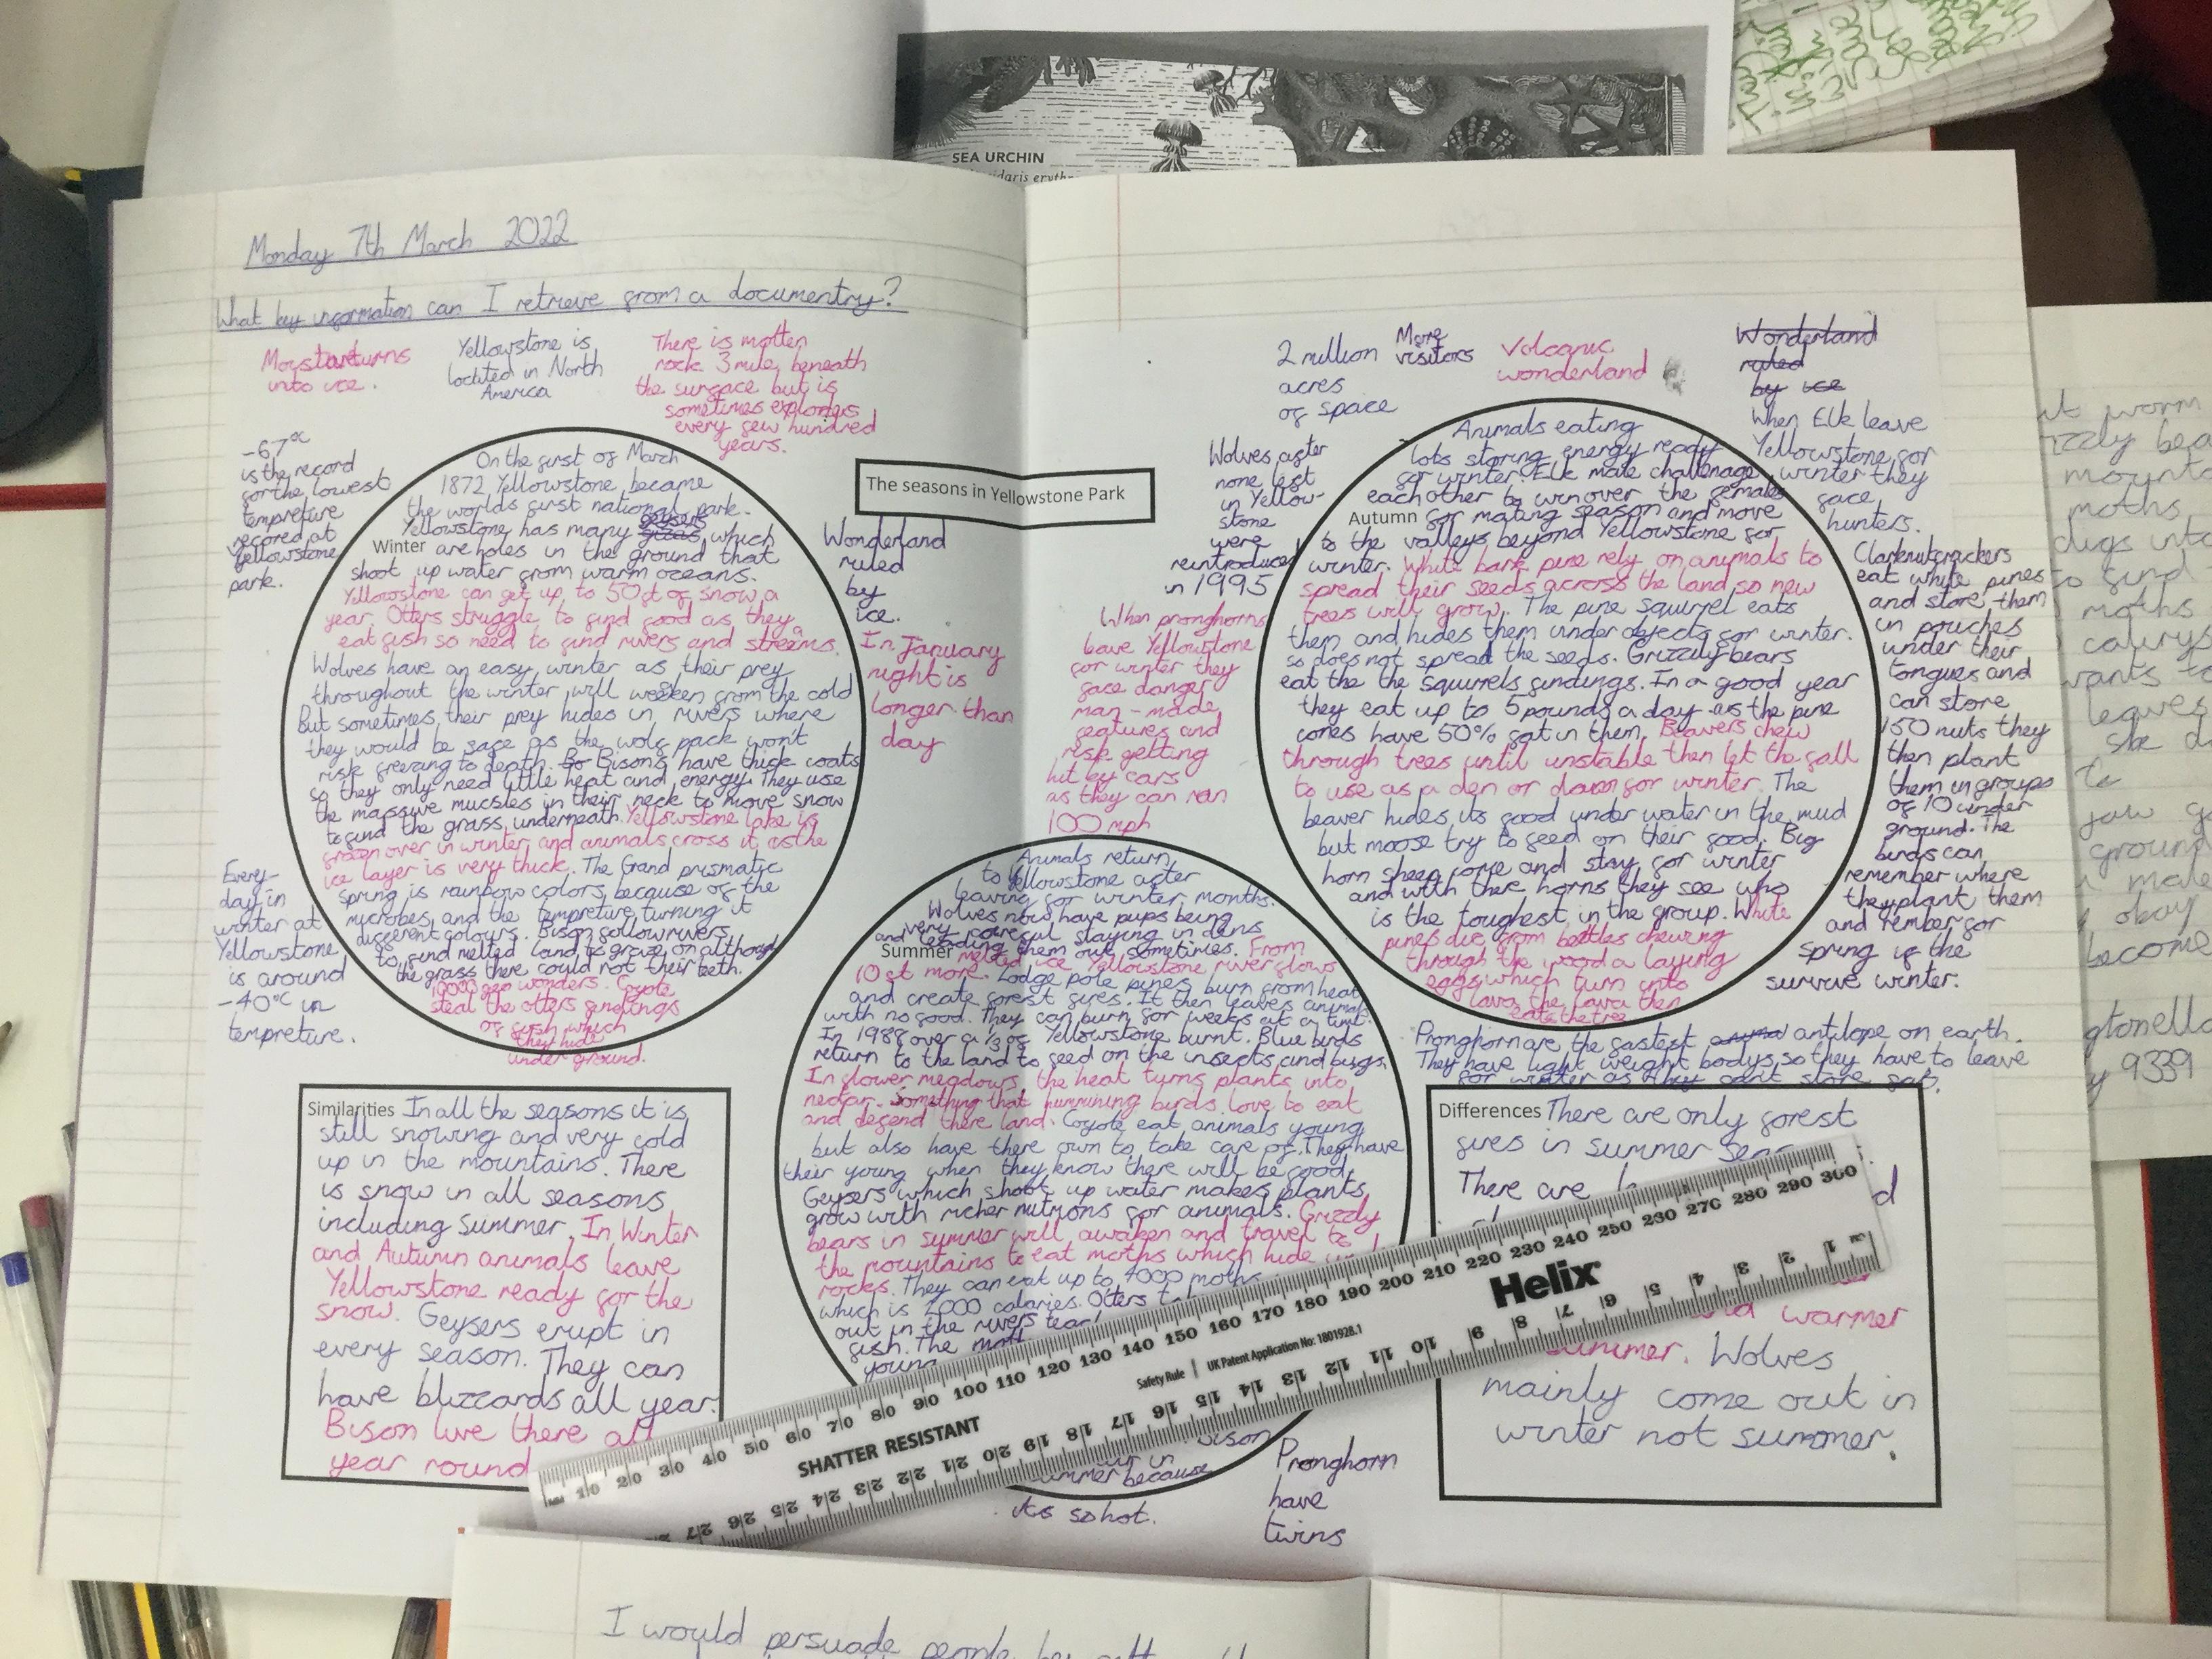 SEA URCHIN
Monday 7th March 2022
What key information can I retrieve from a documentry?
turns
into ice.
Yellowstone is
loctited in North
America
There is molten
rock 3 mile beneath
the surface but is
sometimes
every few hundred
years.
-67°c
is the record
for the lowest
tempreture
recored at
Yellowstone
park.
The seasons in Yellowstone Park
Winter
On the first of March
1872 Yellowstone became
the worlds first national park.
Yellowstone has many geysers which
are holes in the ground that
shoot up water from warm oceans.
Yellowstone can get up to 50ft of snow a
year. Otters struggle to find food as they
eat fish so need to find rivers and streams.
Wolves have an easy winter as their prey
throughout the winter will weaken from the cold
But sometimes their prey hides in rivers where
they would be safe as the wolf pack won't
risk freezing to death. Bisons have thick coats
so they only need little heat and energy. They use
the massive mucsles in their neck to move snow
to find the grass underneath. Yellowstone lake is
frozen over in winter and animals cross it as the
ice layer is very thick. The Grand prismatic
spring is rainbow colors because of the
microbes and the tempreture turning it
different colours. Bison follow rivers
to find melted land to graze on although
the grass there could rot their teeth.
10000 geo wonders. Coyote
steal the otters findings
of fish which
they hide
under ground.
Wonderland
ruled
by
ice.
In January
night is
longer than
day
Every-
day in
winter at
Yellowstone
is around
-40°c in
tempreture.
2 million
acres
of space
More
visitors
Volcanic
wonderland
Wonderland
ruled
by ice
When Elk leave
Yellowstone for
winter they
face
hunters.
Wolves after
none left
in Yellow-
stone
were
reintroduced
in 1995
When pronghorns
leave Yellowstone
for winter they
face danger
man-made
features and
risk getting
hit by cars
as they can ran
100 mph
Autumn
Animals eating
lots storing energy ready
for winter. Elk male challenage
each other to win over the females
for mating season and move
to the valleys beyond Yellowstone for
winter. White bark pine rely on animals to
spread their seeds across the land so new
trees will grow. The pine squirrel eats
them and hides them under objects for winter.
so does not spread the seeds. Grizzly bears
eat the the squirrels findings. In a good year
they eat up to 5 pounds a day as the pine
cones have 50% fat in them. Beavers chew
through trees until unstable then let the fall
to use as a den or dam for winter. The
beaver hides its food under water in the mud
but moose try to feed on their food. Big
horn sheep come and stay for winter
and with their horns they see who
is the toughest in the group. White
pines die from beetles chewing
through the wood a laying
eggs which turn into
lava the lava then
eats the tree
Clarknutcrackers
eat white pines
and store them
in pouches
under their
tongues and
can store
150 nuts they
then plant
them in groups
of 10 under
ground. The
birds can
remember where
they plant them
and rember for
spring if the
survive winter.
Pronghorn are the fastest antilope on earth.
They have light weight bodys so they have to leave
for winter as they can't store fat.
Summer
Animals return
to Yellowstone after
leaving for winter months.
Wolves now have pups being
and very careful staying in dens
leading them out sometimes. From
melted ice Yellowstone river flows
10ft more. Lodge pole pines burn from heat
and create forest fires. It then leaves animals
with no food. They can burn for weeks at a time.
In 1988 over a 1/3 of Yellowstone burnt. Blue birds
return to the land to feed on the insects and bugs.
In flower meadows the heat turns plants into
nectar. Something that humming birds love to eat
and defend there land. Coyote eat animals young
but also have there own to take care of. They have
their young when they know there will be food.
Geysers which shoot up water makes plants
grow with richer nutrions for animals. Grizzly
bears in summer will awaken and travel to
the mountains to eat moths which hide
rocks. They can eat up to 4000 moths
which is 2000 calories. Otters
out in the rivers
fish. The
young
Bison
in
summer because
its so hot.
Pronghorn
have
twins
Similarities In all the seasons it is
still snowing and very cold
up in the mountains. There
is snow in all seasons
including summer. In Winter
and Autumn animals leave
Yellowstone ready for the
snow. Geysers erupt in
every season. They can
have blizzards all year.
Bison live there all
year round
Differences There are only forest
fires in summer
There are
warmer
summer. Wolves
mainly come out in
winter not summer.
SHATTER RESISTANT
Safety Rule | UK Patent Application No: 1801928.1
Helix
10 20 30 40 50 60 70 80 90 100 110 120 130 140 150 160 170 180 190 200 210 220 230 240 250 260 270 280 290 300
cm 1 2 3 4 5 6 7 8 9 10 11 12 13 14 15 16 17 18 19 20 21 22 23 24 25 26 27
moths
leaves
ground
male
okay
become
9339
I would persuade people by